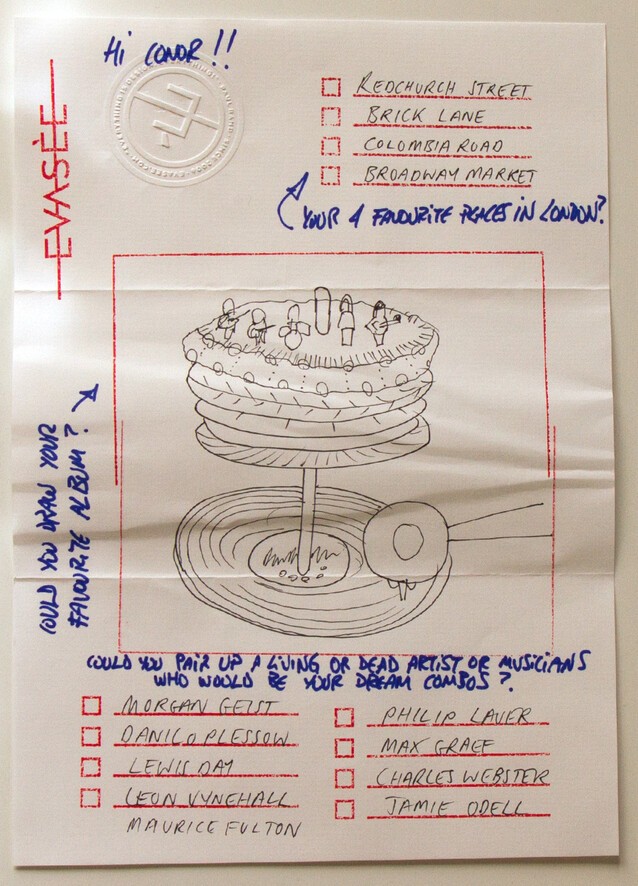 Hi CONOR !!
EVASÈE
REDCHURCH STREET
BRICK LANE
COLOMBIA ROAD
BROADWAY MARKET
YOUR 4 FAVOURITE PLACES IN LONDON?
COULD YOU DRAW YOUR
FAVOURITE ALBUM?
COULD YOU PAIR UP A LIVING OR DEAD ARTIST OR MUSICIANS
WHO WOULD BE YOUR DREAM COMBOS?
MORGAN GEIST
DANILO PLESSOW
LEWIS DAY
LEON VYNEHALL
MAURICE FULTON
PHILIP LAUER
MAX GRAEF
CHARLES WEBSTER
JAMIE ODELL